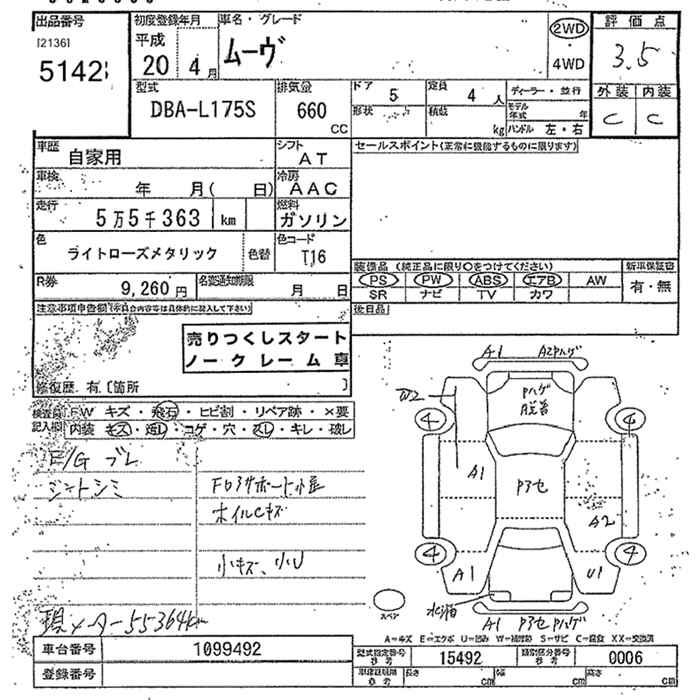 出品番号
初度登録年月
車名・グレード
評価点
[2136]
5142
平成
20 4月
ムーヴ
2WD
4WD
3.5
型式
DBA-L175S
排気量
660
CC
ドア
5
定員
4 人
ディーラー・並行
外装 内装
C C
形状
積載
kg
モデル年式 年
ハンドル 左・右
車歴
自家用
シフト
AT
セールスポイント(正常に機能するものに限ります)
車検
年 月( 日)
冷房
AAC
走行
5万5千363 km
燃料
ガソリン
色
ライトローズメタリック
色替
色コード
T16
R券
9,260円
名変通知期限
月 日
装備品 (純正品に限り○をつけてください)
新車保証書
PS PW ABS エアB AW
SR ナビ TV カワ
有・無
後日品
注意事項申告欄
売りつくしスタート
ノークレーム車
修復歴 有 [箇所 ]
検査員記入欄
FW キズ・飛石・ヒビ割・リペア跡・×要
内装 キズ・汚レ・コゲ・穴・スレ・キレ・破レ
E/G ブレ
シートシミ
ホイルCキズ
小キズ、小U
現メーター55364km
A1
W2
Pハゲ
4
4
A1
Pアセ
A2
4
4
A1
U1
スペア
A1 Pアセ Pハゲ
A=キズ E=エクボ U=凹み W=補修跡 S=サビ C=腐食 XX=交換済
車台番号
1099492
型式指定番号
参考
15492
類別区分番号
参考
0006
登録番号
長さ cm
幅 cm
高さ cm